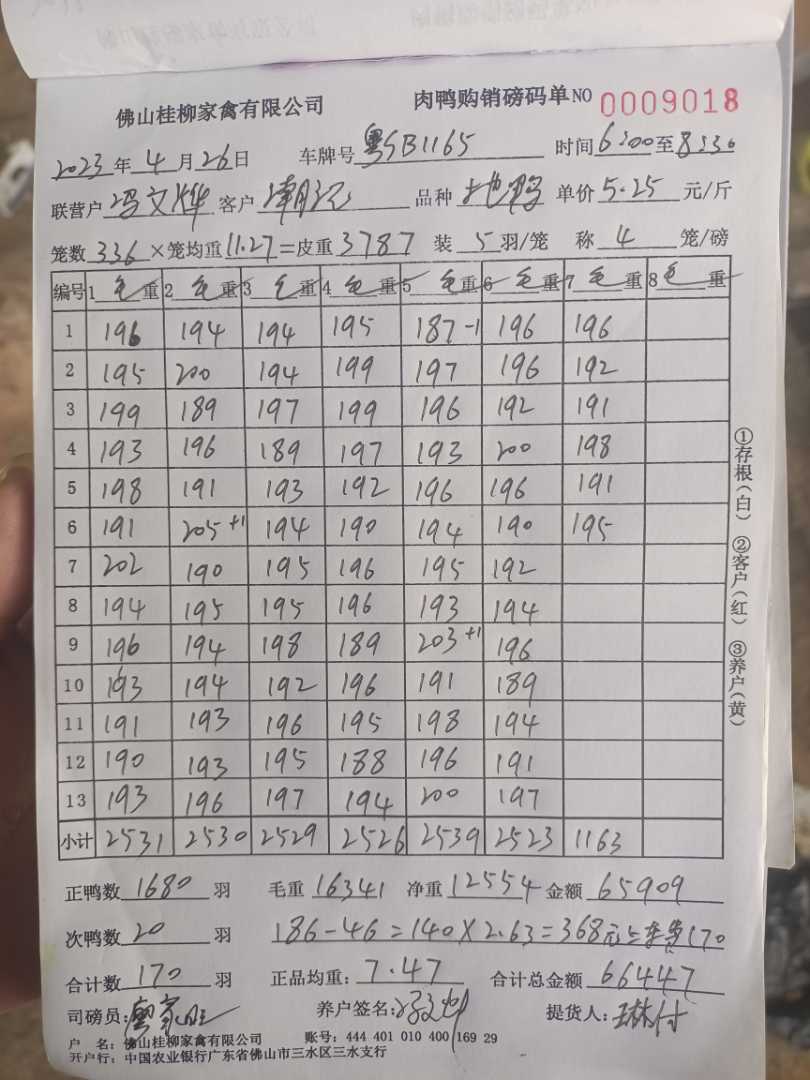 佛山桂柳家禽有限公司 肉鸭购销磅码单 NO 0009018
2023年4月26日 车牌号 粤SB1165 时间6:00至8:30
联营户 冯文烨 客户 潮记 品种 土地鸭 单价5.25元/斤
笼数336×笼均重11.27=皮重3787 装5羽/笼 称4笼/磅
编号 1毛重 2毛重 3毛重 4毛重 5毛重 6毛重 7毛重 8毛重
1 196 194 194 195 187-1 196 196
2 195 200 194 199 197 196 192
3 199 189 197 199 196 192 191
4 193 196 189 197 193 200 198
5 198 191 193 192 196 196 191
6 191 205+1 194 190 194 190 195
7 202 190 195 196 195 192
8 194 195 195 196 193 194
9 196 194 198 189 203+1 196
10 193 194 192 196 191 189
11 191 193 196 195 198 194
12 190 193 195 188 196 191
13 193 196 197 194 200 197
小计 2531 2530 2529 2526 2539 2523 1163
①存根(白) ②客户(红) ③养户(黄)
正鸭数1680羽 毛重16341 净重12554 金额65909
次鸭数20羽 186-46=140×2.63=368元 170
合计数170羽 正品均重:7.47 合计总金额66447
司磅员: 养户签名: 提货人:
户 名:佛山桂柳家禽有限公司 账号:444 401 010 400 169 29
开户行:中国农业银行广东省佛山市三水区三水支行